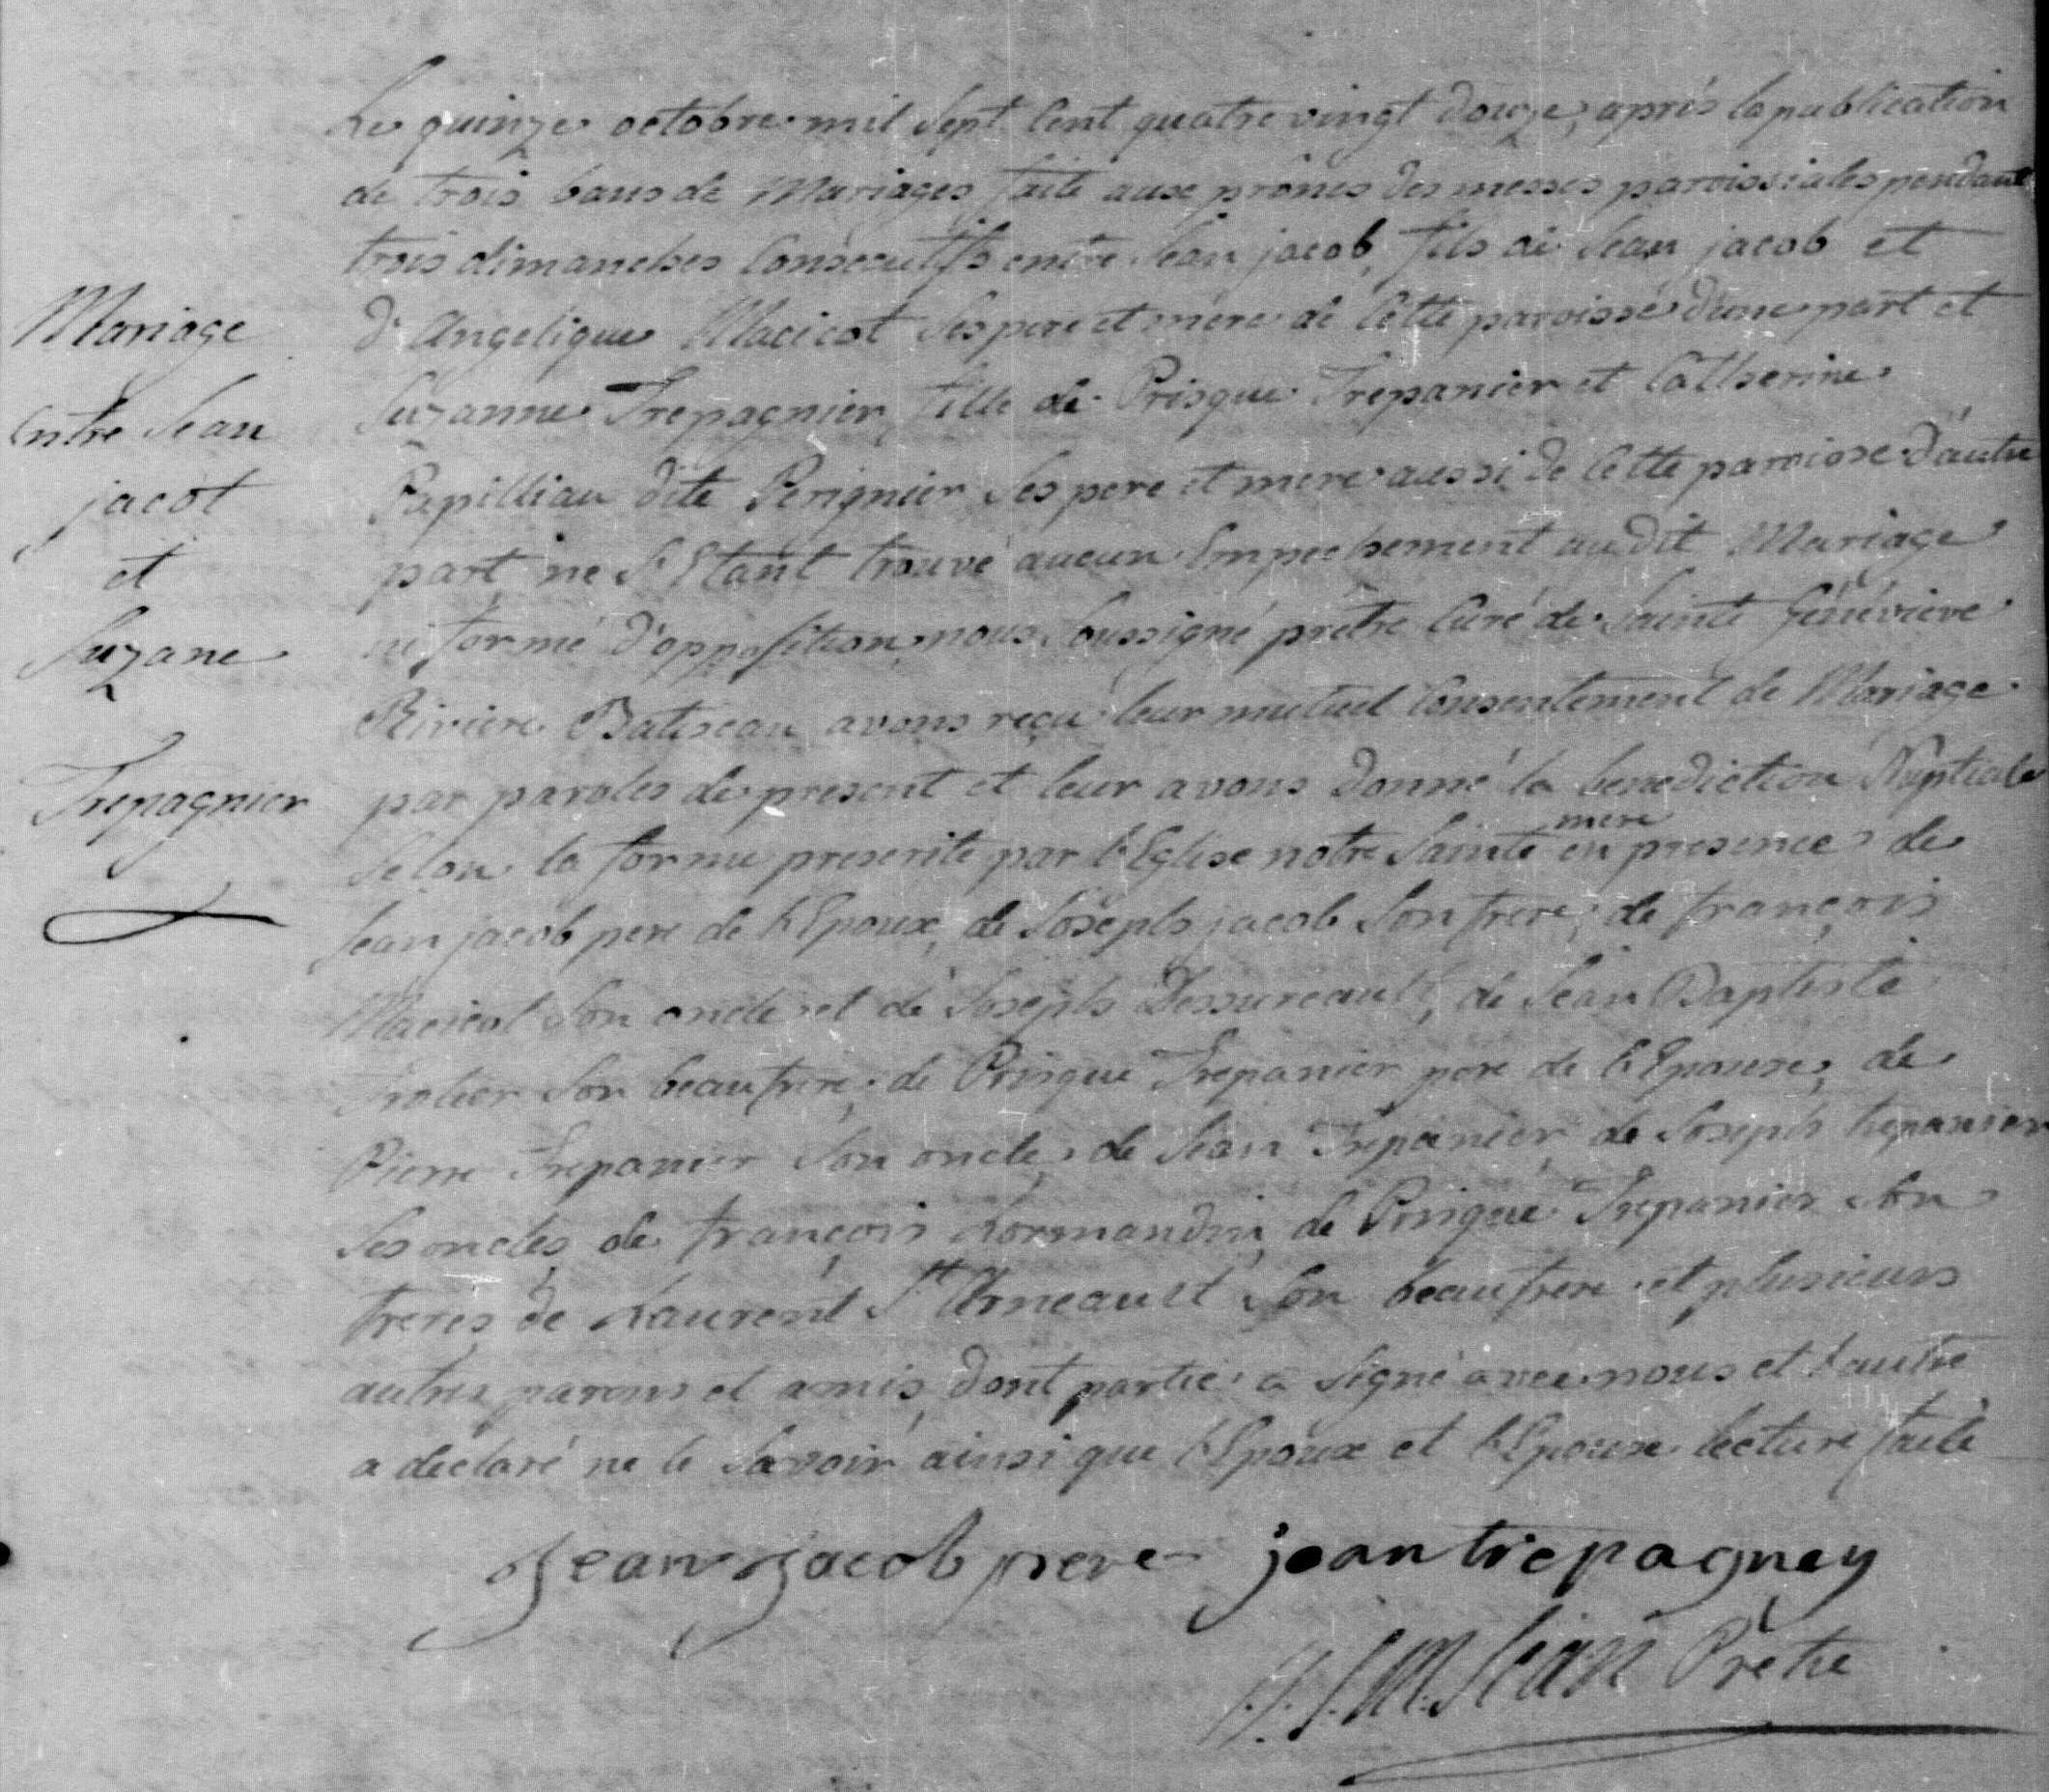 Le quinze octobre mil Sept Cent quatre vingt douze, après la publication
de trois bans de Mariages faite aux prônes des messes paroissiales pendant
trois dimanches Consecutifs entre Jean jacob, fils de Jean jacob et
d'Angelique Macicot Ses pere et mere de Cette paroisse d'une part et
Suzanne Trepagnier, fille de Prisque Trepanier et Catherine
Papilliau dite Perignier Ses pere et mere aussi de Cette paroisse d'autre
part ne S'Etant trouvé aucun Empechement au dit Mariage
ni formé d'opposition, nous Soussigné prêtre Curé de Sainte Généviéve
Riviere Batiscan avons reçu leur mutuel Consentement de Mariage
par paroles de present et leur avons donné la benediction Nuptiale
Selon la forme prescrite par l'Eglise notre Sainte mere en presence de
Jean jacob pere de l'Epoux, de Joseph jacob Son frere, de françois
Macicot Son oncle et de Joseph Dessureault, de Jean Baptiste
Trotier Son beaufrere, de Prisque Trepanier pere de l'Epouse, de
Pierre Trepanier Son oncle, de Jean Trepanier de Joseph trepanier
Ses oncles, de françois Lormandin, de Prisque Trepanier Son
freres de Laurent St Arneault Son beaufrere et plusieurs
autres parens et amis, dont partie a Signé avec nous et l'autre
a déclaré ne le Savoir ainsi que l'Epoux et l'Epouse lecture faite
Jean Jacob pere jean trepagney
Jean Prêtre
Mariage
Entre Jean
jacot
et
Suzane
Trepagnier